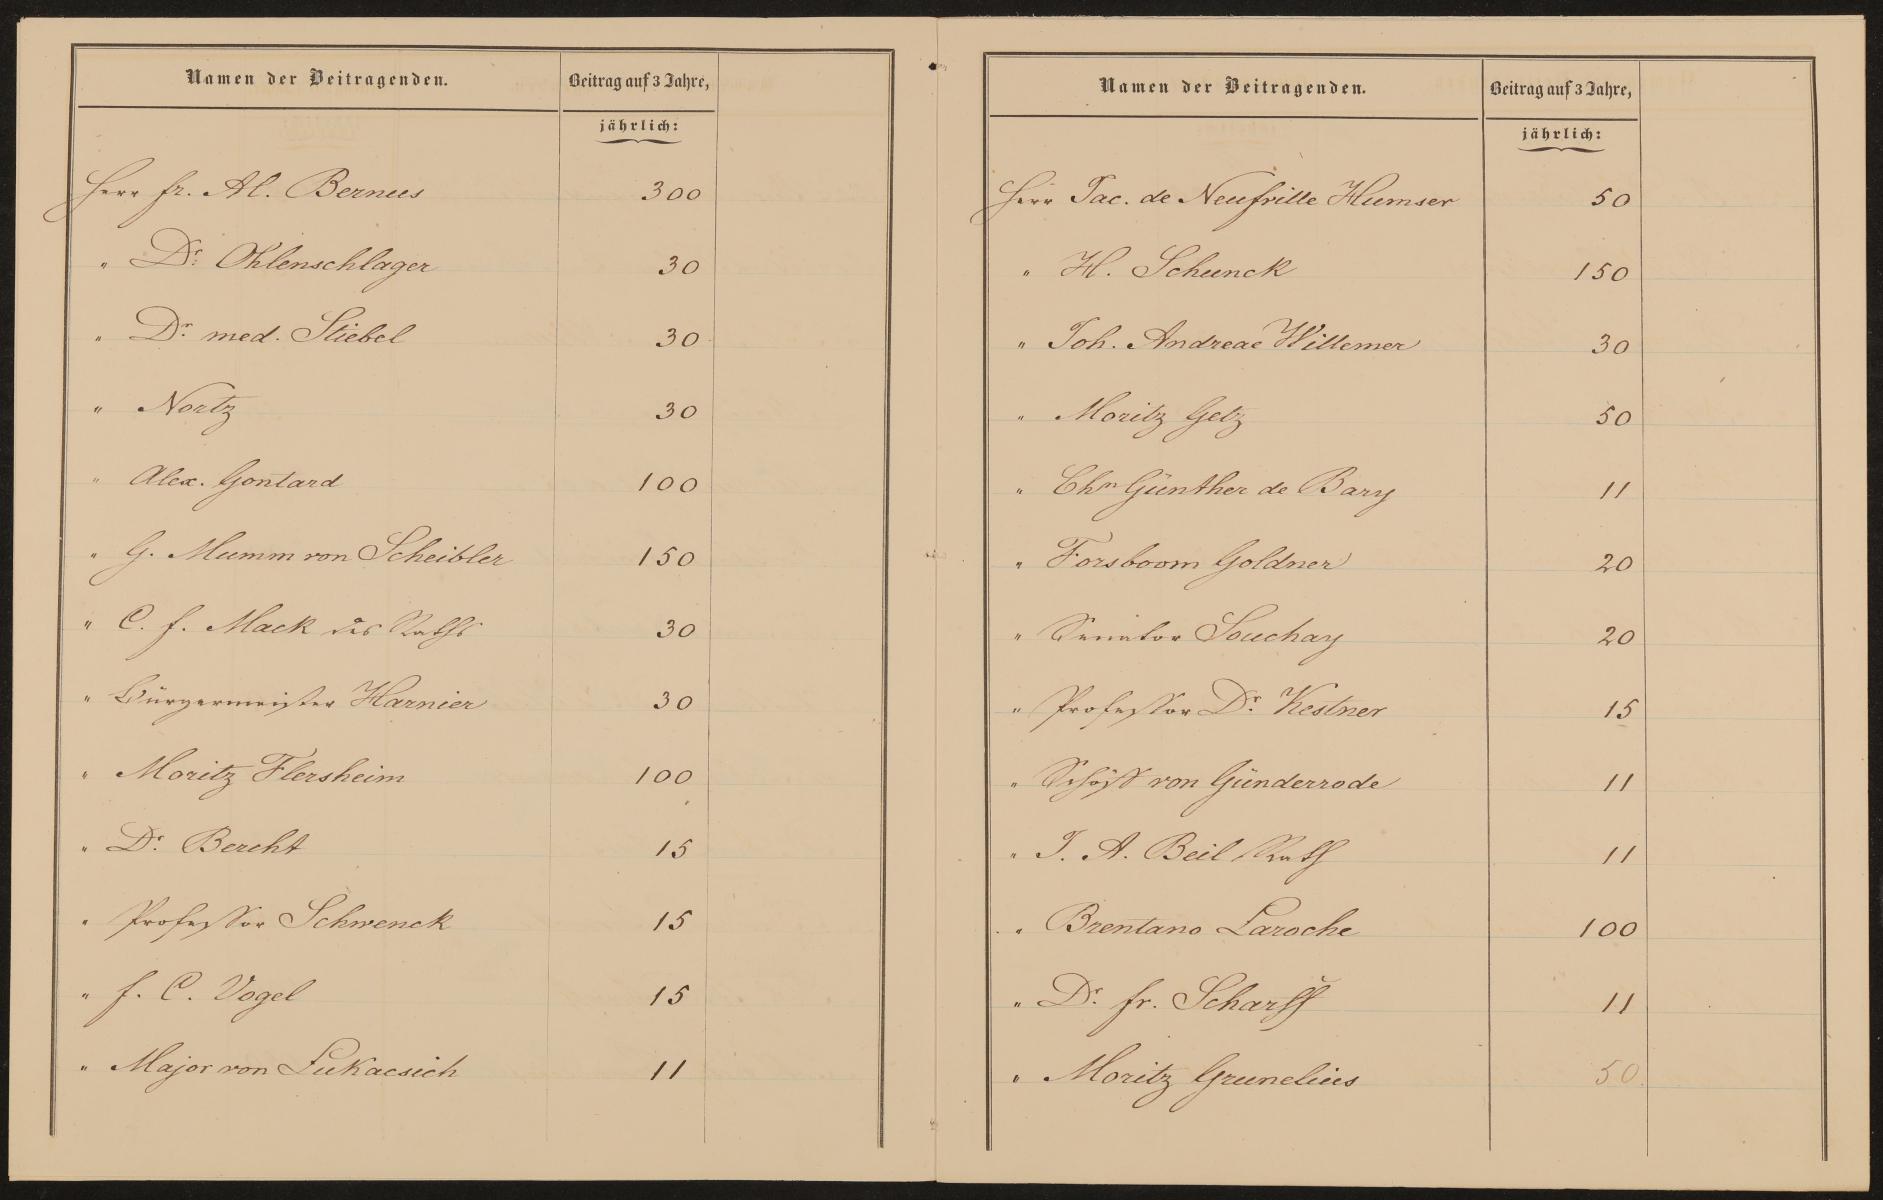 Namen der Beitragenden. Beitrag auf 3 Jahre,
jährlich:
Herr Fr. Al. Bernus 300
" Dr. Ohlenschlager 30
" Dr. med. Stiebel 30
" Nortz 30
" Alex. Gontard 100
" G. Mumm von Scheibler 150
" C. F. Mack des Raths 30
" Bürgermeister Harnier 30
" Moritz Flersheim 100
" Dr. Bercht 15
" Professor Schwenck 15
" F. C. Vogel 15
" Major von Lukacsich 11
Namen der Beitragenden. Beitrag auf 3 Jahre,
jährlich:
Herr Jac. de Neufville Humser 50
" H. Schunck 150
" Joh. Andreae Willemer 30
" Moritz Getz 50
" Chn Günther de Bary 11
" Forsboom Goldner 20
" Senator Souchay 20
" Professor Dr. Kestner 15
" Schöff von Günderrode 11
" J. A. Beil Rath 11
" Brentano Laroche 100
" Dr. Fr. Scharff 11
" Moritz Grunelius 50